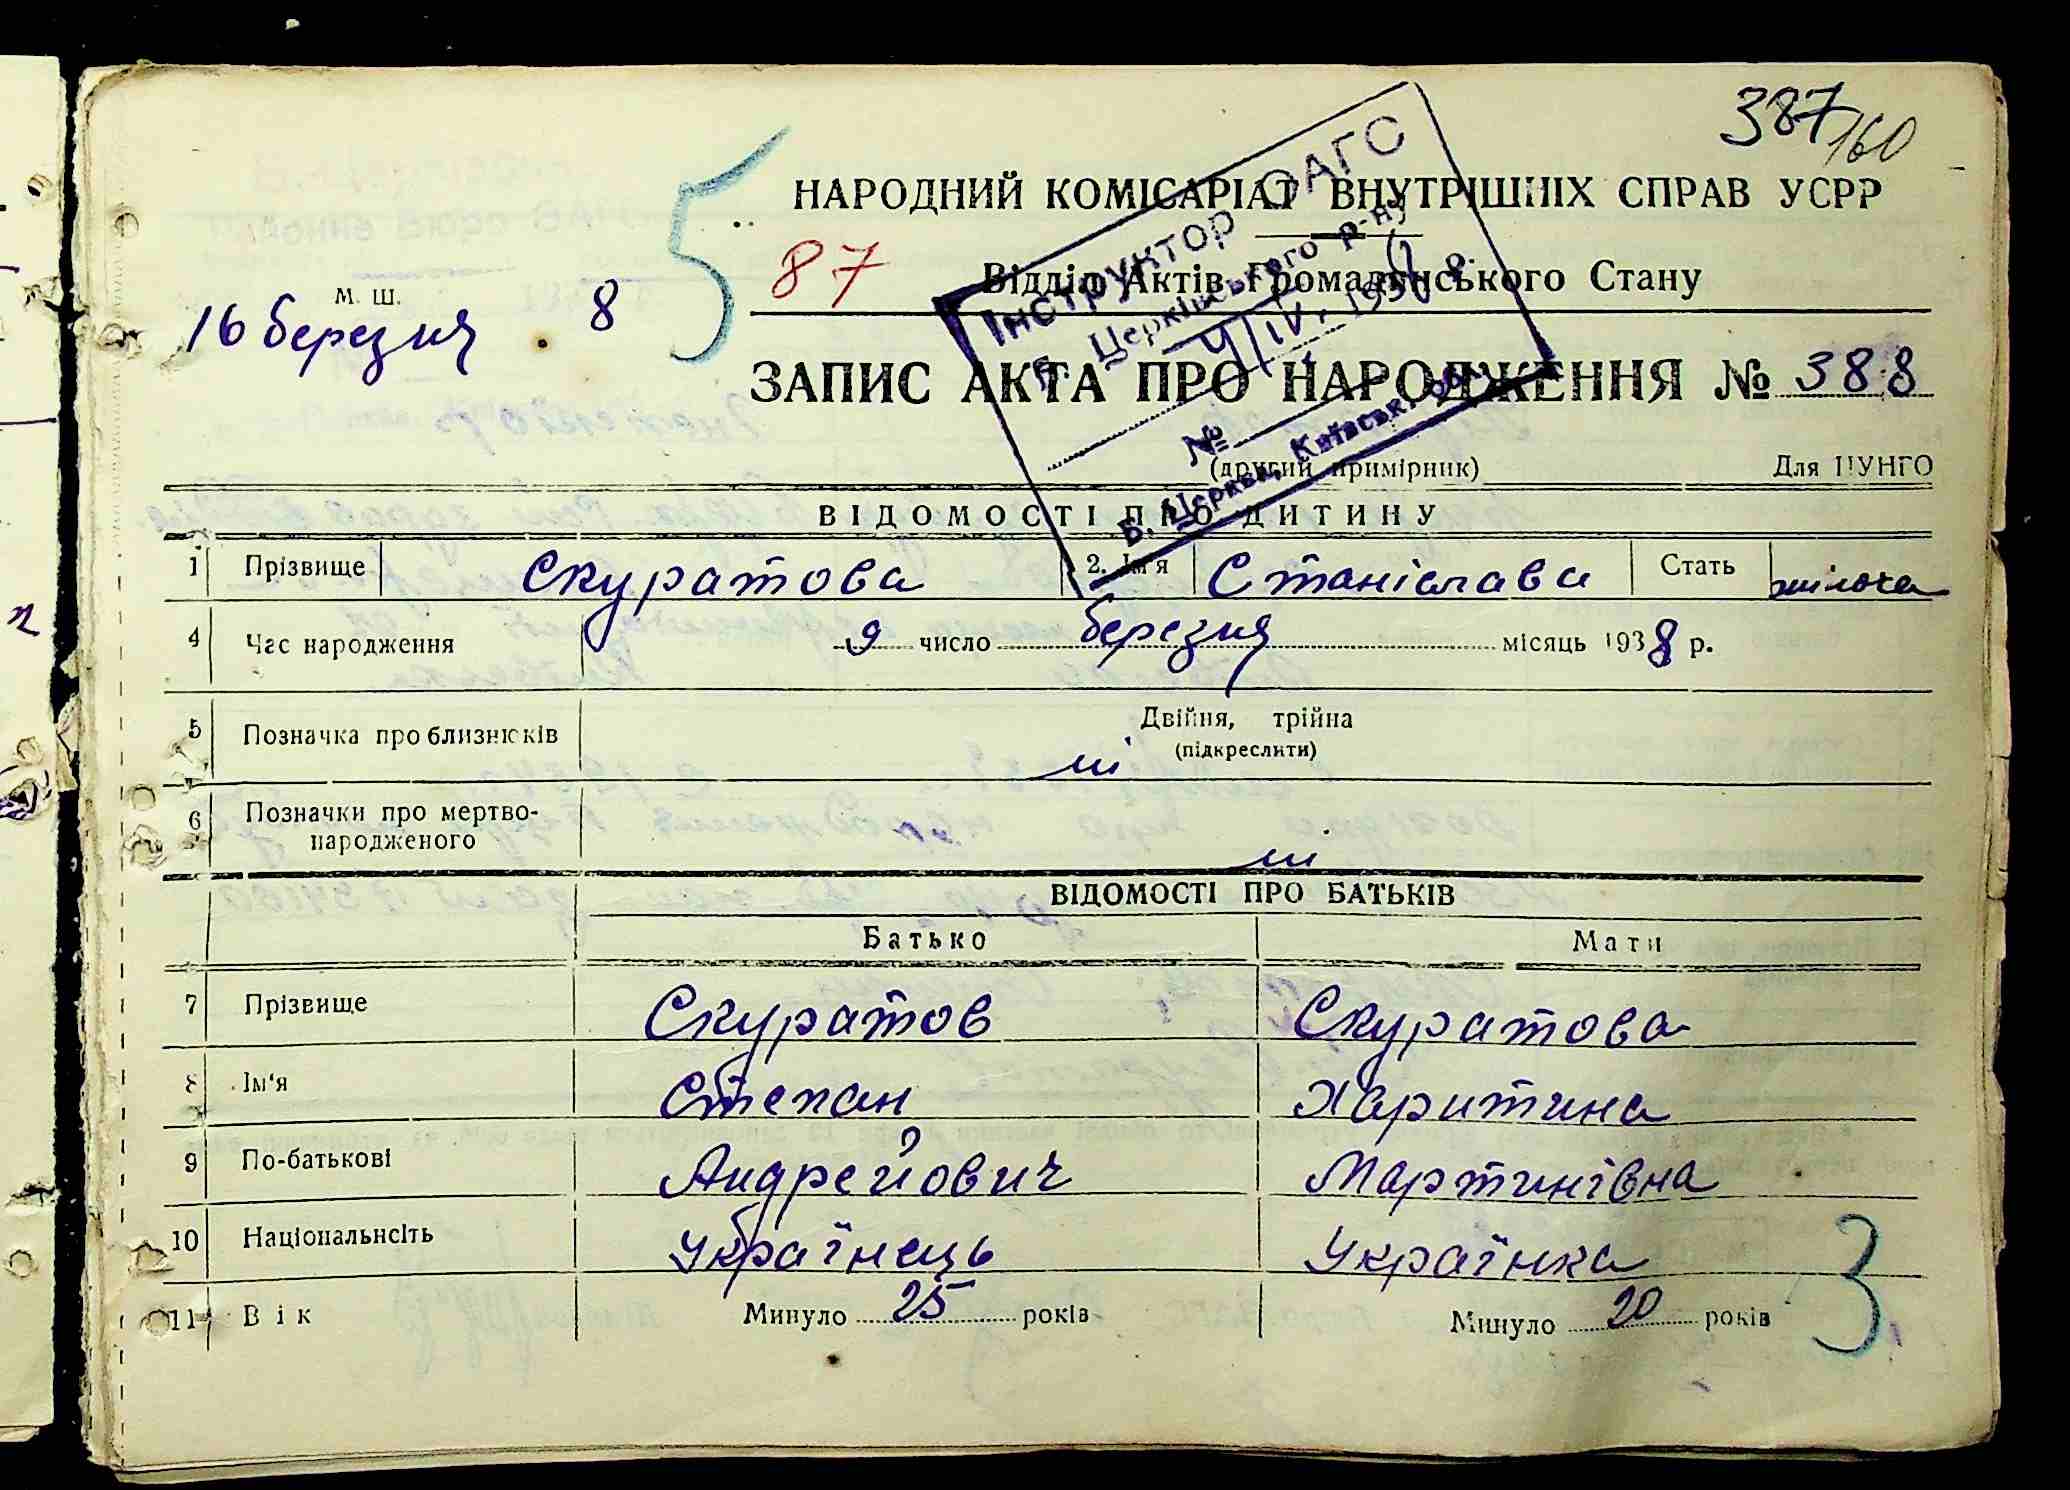 387
160
НАРОДНИЙ КОМІСАРІАТ ВНУТРІШНІХ СПРАВ УСРР
5
87
Відділ Актів Громадянського Стану
м. ш.
16 березня 8
Інструктор ОАГС
Б. Церківського р-ну
4/IV. 1938 р.
№
Б. Церква, Київськ. обл.
ЗАПИС АКТА ПРО НАРОДЖЕННЯ № 388
(другий примірник) Для ЦУНГО
ВІДОМОСТІ ПРО ДИТИНУ
1 Прізвище Скуратова 2. Ім'я Станіслава Стать жіноча
4 Час народження 9 число березня місяць 1938 р.
5 Позначка про близнюків Двійня, трійна
(підкреслити)
ні
6 Позначки про мертво-
народженого
ні
ВІДОМОСТІ ПРО БАТЬКІВ
Батько Мати
7 Прізвище Скуратов Скуратова
8 Ім'я Степан Харитина
9 По-батькові Андрейович Мартинівна
10 Національнсіть Українець Українка
11 Вік Минуло 25 років Минуло 20 років
3